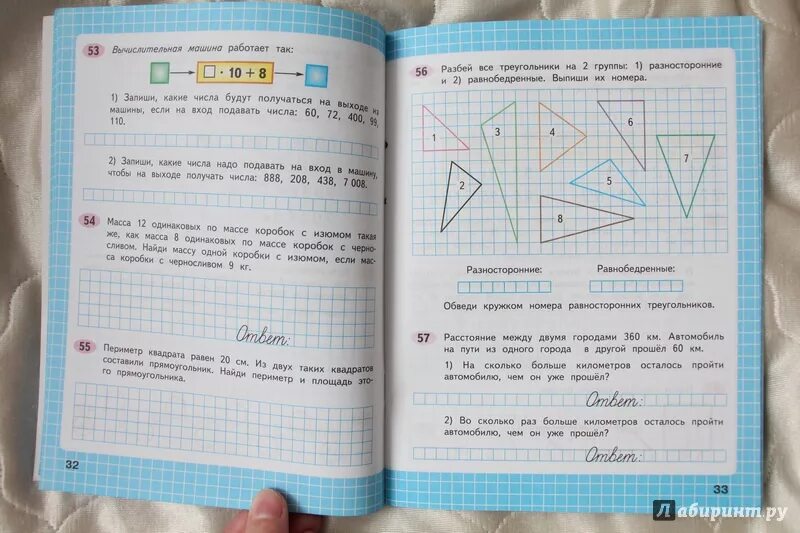 53 Вычислительная машина работает так:
□ · 10 + 8
1) Запиши, какие числа будут получаться на выходе из
машины, если на вход подавать числа: 60, 72, 400, 99,
110.
2) Запиши, какие числа надо подавать на вход в машину,
чтобы на выходе получать числа: 888, 208, 438, 7 008.
54 Масса 12 одинаковых по массе коробок с изюмом такая
же, как масса 8 одинаковых по массе коробок с черно-
сливом. Найди массу одной коробки с изюмом, если мас-
са коробки с черносливом 9 кг.
Ответ:
55 Периметр квадрата равен 20 см. Из двух таких квадратов
составили прямоугольник. Найди периметр и площадь это-
го прямоугольника.
32
56 Разбей все треугольники на 2 группы: 1) разносторонние
и 2) равнобедренные. Выпиши их номера.
1
2
3
4
5
6
7
8
Разносторонние: Равнобедренные:
Обведи кружком номера равносторонних треугольников.
57 Расстояние между двумя городами 360 км. Автомобиль
на пути из одного города в другой прошёл 60 км.
1) На сколько больше километров осталось пройти
автомобилю, чем он уже прошёл?
Ответ:
2) Во сколько раз больше километров осталось пройти
автомобилю, чем он уже прошёл?
Ответ:
33
Лабиринт.ру